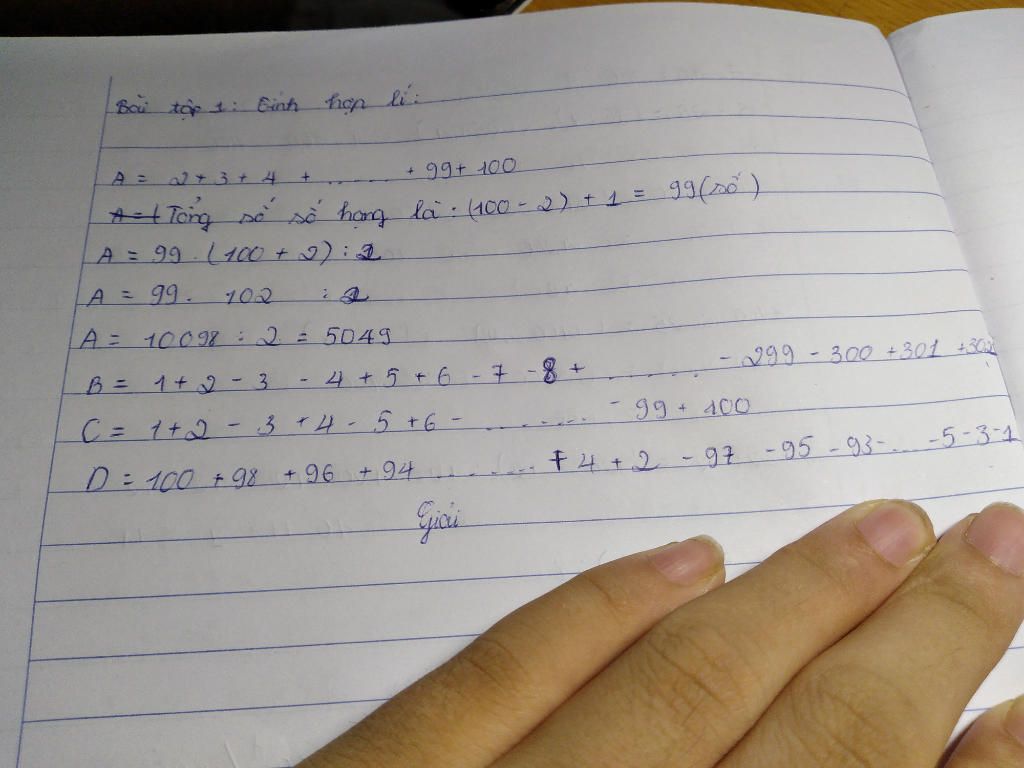 Bài tập 1: Tính hợp lí:
A = 2 + 3 + 4 + ........ + 99 + 100
A = ( Tổng số số hạng là : (100 - 2) + 1 = 99 (số)
A = 99 . (100 + 2) : 2
A = 99 . 102 : 2
A = 10098 : 2 = 5049
B = 1 + 2 - 3 - 4 + 5 + 6 - 7 - 8 + ........ - 299 - 300 + 301 + 302
C = 1 + 2 - 3 + 4 - 5 + 6 - ........ - 99 + 100
D = 100 + 98 + 96 + 94 ........ + 4 + 2 - 97 - 95 - 93 - .... - 5 - 3 - 1
Giải